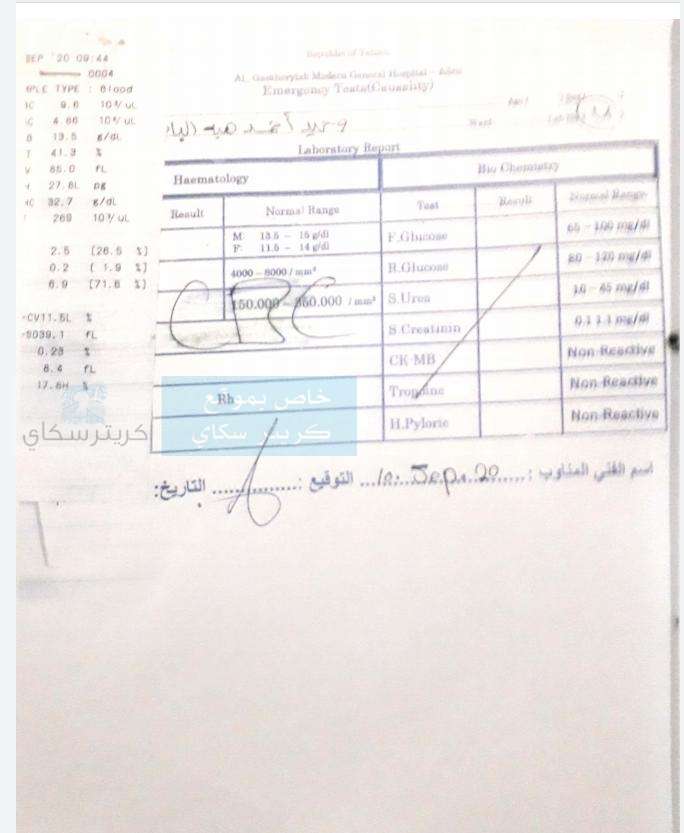 SEP '20 09:44
0004
TYPE : Blood
9.6 10³/uL
4.86 10⁶/uL
13.5 g/dL
41.3 %
85.0 fL
27.8L pg
32.7 g/dL
269 10³/uL
2.5 [26.5 %]
0.2 [ 1.9 %]
6.9 [71.6 %]
CV11.5L %
39.1 fL
0.23 %
8.4 fL
17.6H %
AL. Modern General Hospital - Aden
Emergency Tests(Causality)
أحمد هبه
Laboratory Report
Haematology
Bio Chemistry
Result
Normal Range
Test
Result
Normal Range
M: 13.5 - 16 g/dl
F: 11.5 - 14 g/dl
F.Glucose
65 - 100 mg/dl
4000 - 8000 / mm³
R.Glucose
80 - 120 mg/dl
CBC
150.000 - 350.000 / mm³
S.Urea
10 - 45 mg/dl
S.Creatinin
mg/dl
CK-MB
Non Reactive
Rh
Non Reactive
H.Pylorie
Non Reactive
خاص بموقع
كريتر سكاي
كريترسكاي
اسم الفني المناوب : 10. Sep. 20 التوقيع : التاريخ: